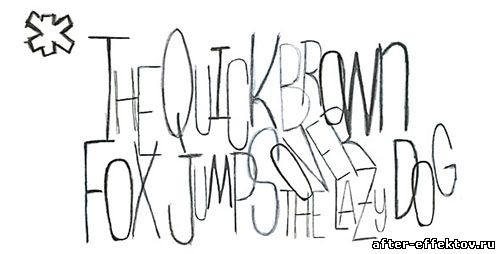 THE QUICK BROWN
FOX JUMPS OVER THE LAZY DOG
after-effektov.ru